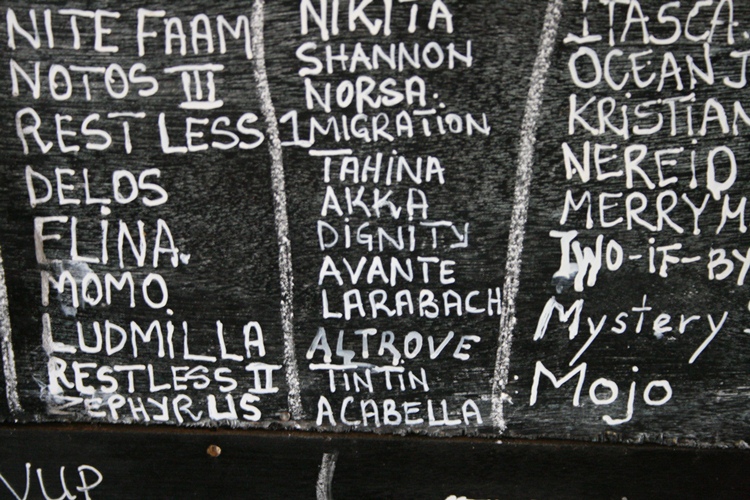 NITE FAAM
NOTOS III
RESTLESS 1
DELOS
ELINA
MOMO
LUDMiLLA
RESTLESS II
ZEPHYRUS
NIKITA
SHANNON
NORSA
MIGRATiON
TAHiNA
AKKA
DiGNITY
AVANTE
LARABACH
ALTROVE
TINTiN
ACABELLA
ITASCA
OCEAN J
KRiSTIAN
NEREiD
MERRY M
TWO-iF-BY
Mystery
Mojo
VUP